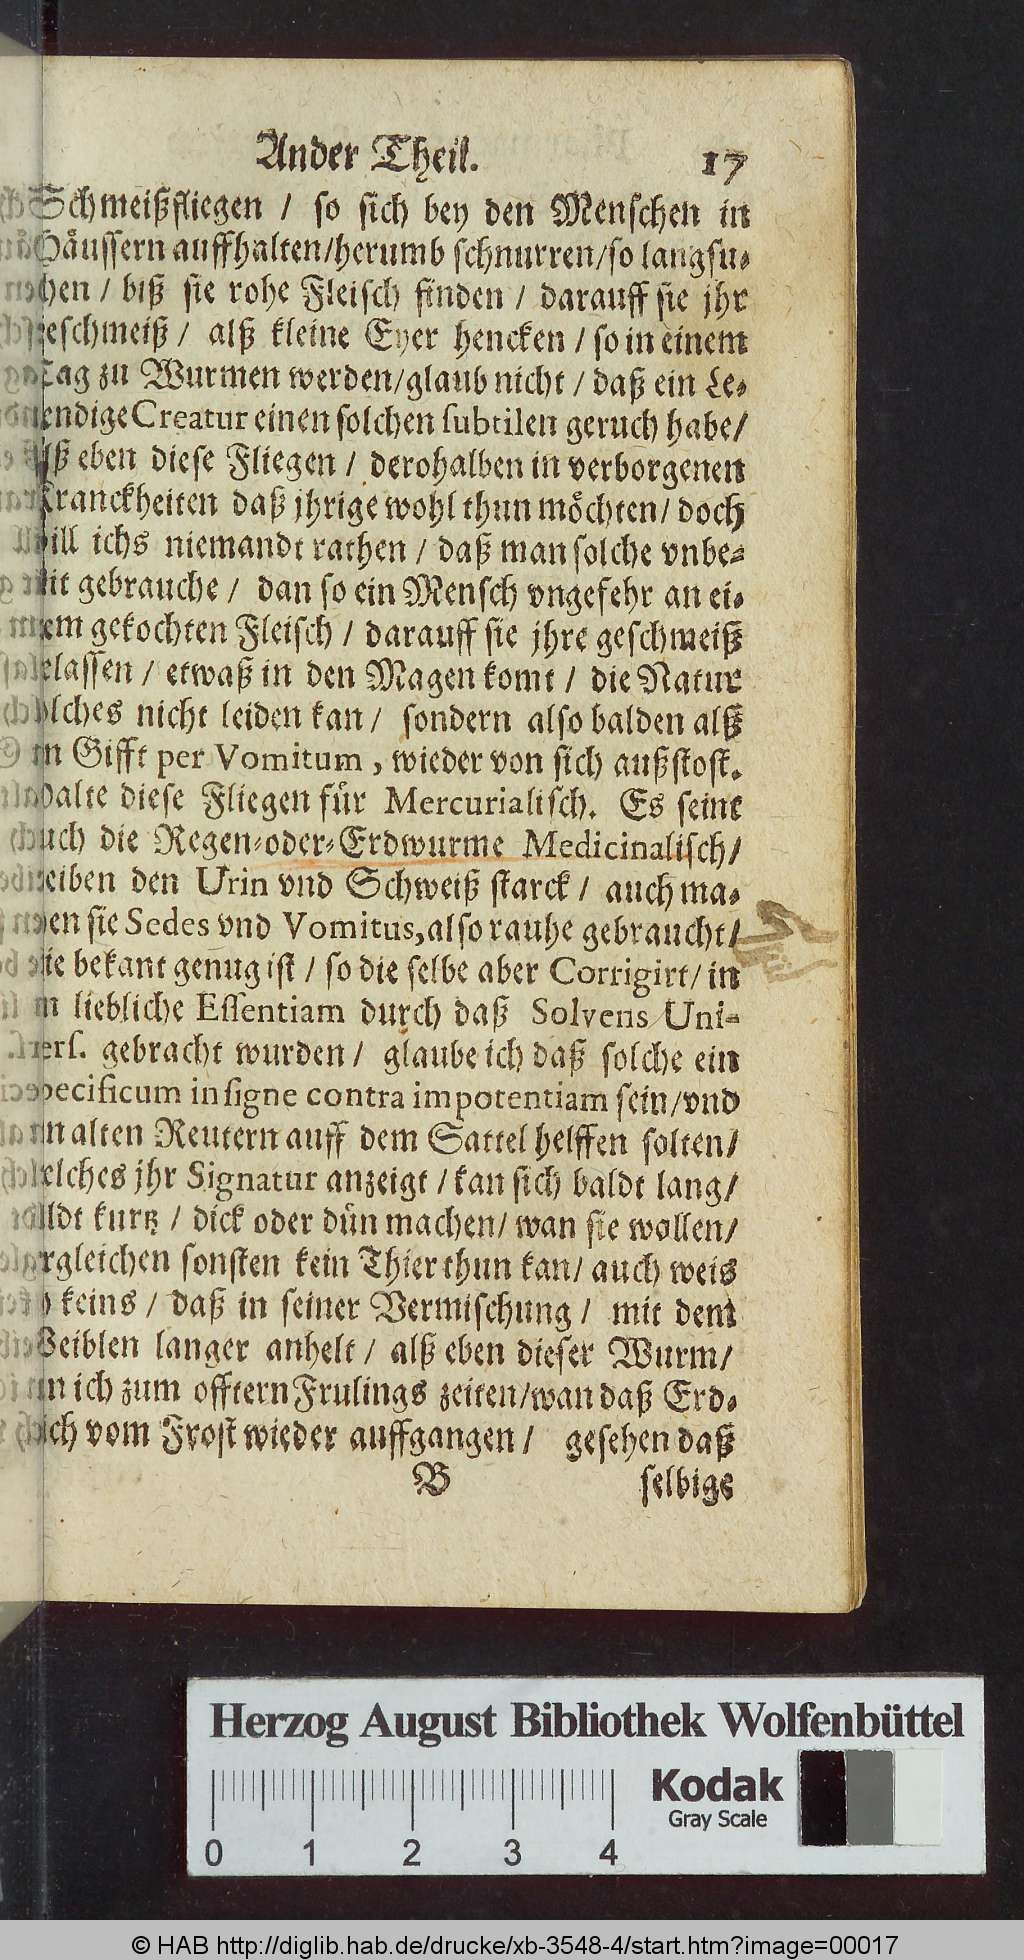 Ander Theil. 17
Schmeißfliegen / so sich bey den Menschen in
Häussern auffhalten/herumb schnurren/so langsu-
chen / biß sie rohe Fleisch finden / darauff sie jhr
geschmeiß / alß kleine Eyer hencken / so in einem
Tag zu Wurmen werden/glaub nicht / daß ein Le-
bendige Creatur einen solchen subtilen geruch habe/
alß eben diese Fliegen / derohalben in verborgenen
Kranckheiten daß jhrige wohl thun möchten/ doch
will ichs niemandt rathen / daß man solche vnbe-
reit gebrauche / dan so ein Mensch vngefehr an ei-
nem gekochten Fleisch / darauff sie jhre geschmeiß
gelassen / etwaß in den Magen komt / die Natur
solches nicht leiden kan / sondern also balden alß
ein Gifft per Vomitum, wieder von sich außstost.
halte diese Fliegen für Mercurialisch. Es seint
auch die Regen-oder-Erdwurme Medicinalisch/
treiben den Urin vnd Schweiß starck / auch ma-
chen sie Sedes vnd Vomitus, also rauhe gebraucht/
wie bekant genug ist / so die selbe aber Corrigirt/ in
ein liebliche Essentiam durch daß Solvens Uni-
vers. gebracht wurden / glaube ich daß solche ein
specificum insigne contra impotentiam sein/vnd
den alten Reutern auff dem Sattel helffen solten/
welches jhr Signatur anzeigt / kan sich baldt lang/
baldt kurtz / dick oder dün machen/ wan sie wollen/
dergleichen sonsten kein Thier thun kan/ auch weis
ich keins / daß in seiner Vermischung / mit dem
Weiblen langer anhelt / alß eben dieser Wurm/
den ich zum offtern Frulings zeiten/wan daß Erd-
rich vom Frost wieder auffgangen / gesehen daß
B selbige
Herzog August Bibliothek Wolfenbüttel
Kodak
Gray Scale
0 1 2 3 4
© HAB http://diglib.hab.de/drucke/xb-3548-4/start.htm?image=00017